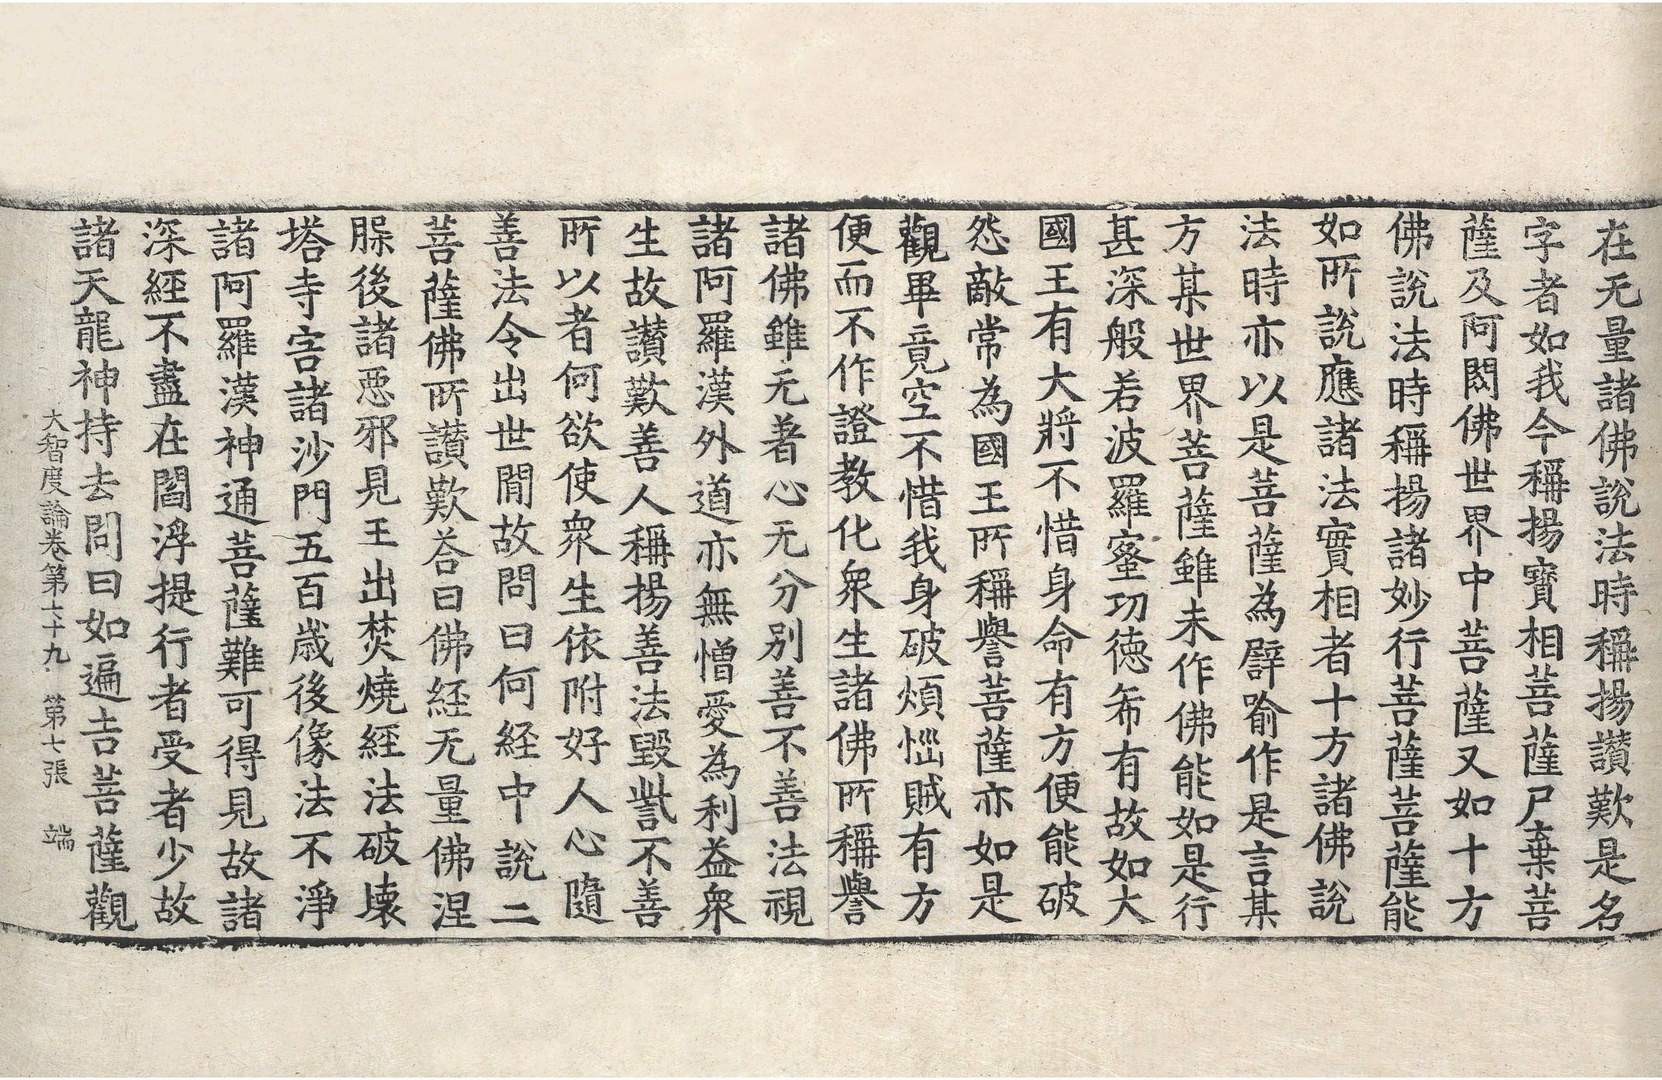 在无量諸佛說法時稱揚讃歎是名
字者如我今稱揚寶相菩薩尸棄菩
薩及阿閦佛世界中菩薩又如十方
佛說法時稱揚諸妙行菩薩菩薩能
如所說應諸法實相者十方諸佛說
法時亦以是菩薩為譬喻作是言某
方某世界菩薩雖未作佛能如是行
甚深般若波羅蜜功德希有故如大
國王有大將不惜身命有方便能破
怨敵常為國王所稱譽菩薩亦如是
觀畢竟空不惜我身破煩惱賊有方
便而不作證教化衆生諸佛所稱譽
諸佛雖无著心无分別善不善法視
諸阿羅漢外道亦無憎愛為利益衆
生故讃歎善人稱揚善法毀呰不善
所以者何欲使衆生依附好人心隨
善法令出世閒故問曰何經中說二
菩薩佛所讃歎荅曰佛経无量佛涅
槃後諸惡邪見王出焚燒経法破壞
塔寺害諸沙門五百歲後像法不淨
諸阿羅漢神通菩薩難可得見故諸
深經不盡在閻浮提行者受者少故
諸天龍神持去問曰如遍吉菩薩觀
大智度論卷第七十九 第七張 端